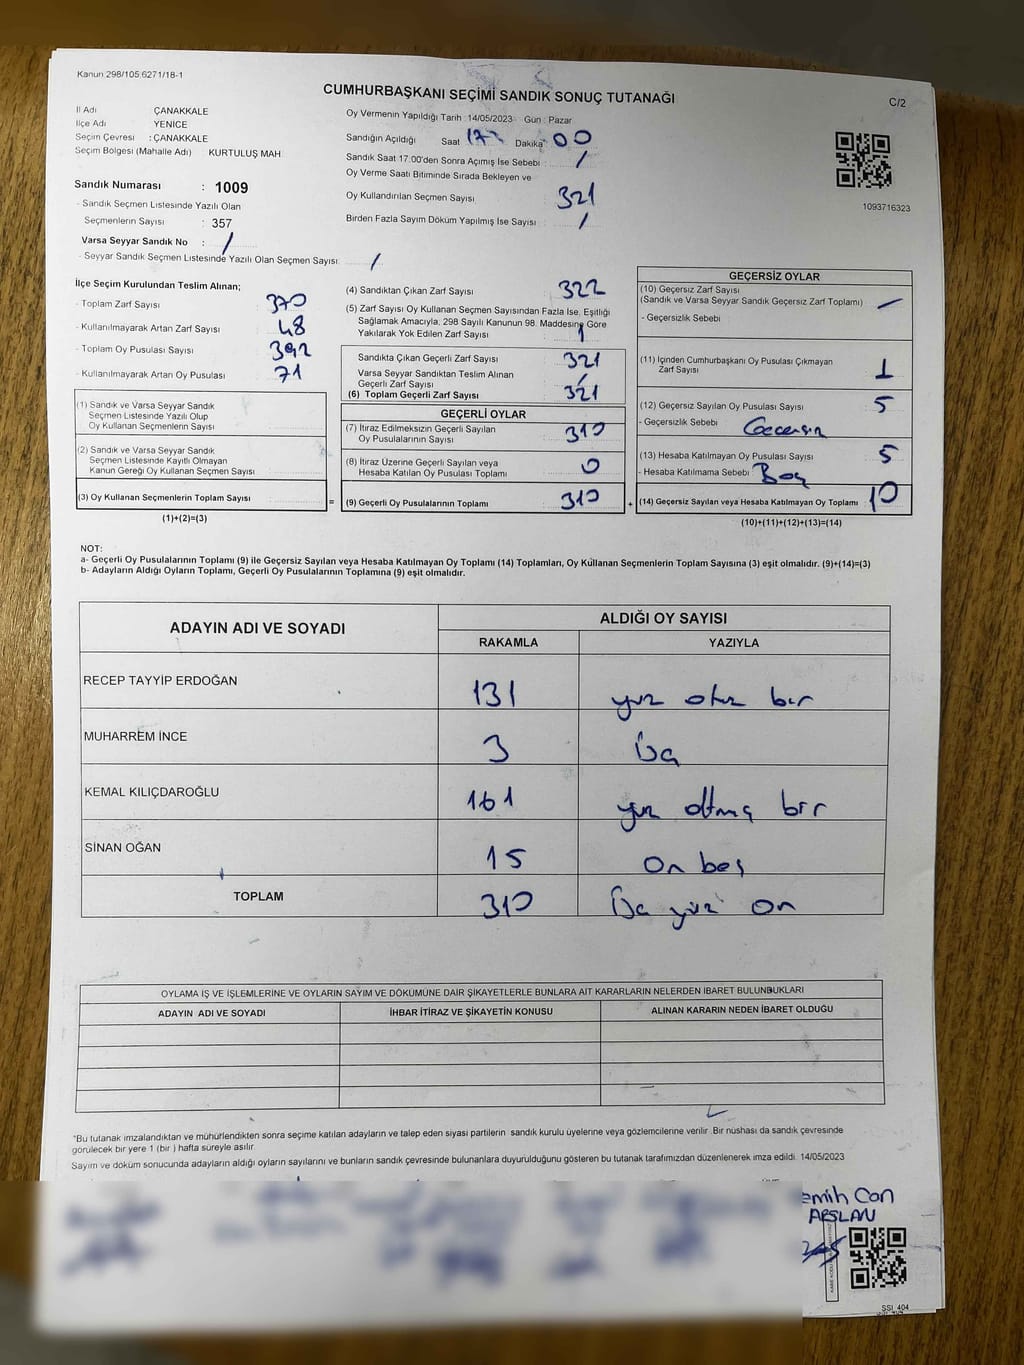 Kanun 298/105 6271/18-1
CUMHURBAŞKANI SEÇİMİ SANDIK SONUÇ TUTANAĞI
C/2
İl Adı ÇANAKKALE
İlçe Adı YENİCE
Seçim Çevresi : ÇANAKKALE
Seçim Bölgesi (Mahalle Adı) KURTULUŞ MAH
Sandık Numarası : 1009
- Sandık Seçmen Listesinde Yazılı Olan
Seçmenlerin Sayısı : 357
Varsa Seyyar Sandık No : /
- Seyyar Sandık Seçmen Listesinde Yazılı Olan Seçmen Sayısı: /
Oy Vermenin Yapıldığı Tarih :14/05/2023 Gün : Pazar
Sandığın Açıldığı Saat 17 Dakika 00
Sandık Saat 17:00'den Sonra Açımış İse Sebebi : /
Oy Verme Saati Bitiminde Sırada Bekleyen ve
Oy Kullandırılan Seçmen Sayısı 321
Birden Fazla Sayım Döküm Yapılmış İse Sayısı : /
1093716323
İlçe Seçim Kurulundan Teslim Alınan;
- Toplam Zarf Sayısı : 370
- Kullanılmayarak Artan Zarf Sayısı : 48
- Toplam Oy Pusulası Sayısı : 392
- Kullanılmayarak Artan Oy Pusulası : 71
(1) Sandık ve Varsa Seyyar Sandık
Seçmen Listesinde Yazılı Olup
Oy Kullanan Seçmenlerin Sayısı
(2) Sandık ve Varsa Seyyar Sandık
Seçmen Listesinde Kayıtlı Olmayan
Kanun Gereği Oy Kullanan Seçmen Sayısı
(3) Oy Kullanan Seçmenlerin Toplam Sayısı =
(1)+(2)=(3)
(4) Sandıktan Çıkan Zarf Sayısı 322
(5) Zarf Sayısı Oy Kullanan Seçmen Sayısından Fazla İse, Eşitliği
Sağlamak Amacıyla, 298 Sayılı Kanunun 98. Maddesine Göre
Yakılarak Yok Edilen Zarf Sayısı 1
Sandıkta Çıkan Geçerli Zarf Sayısı 321
Varsa Seyyar Sandıktan Teslim Alınan
Geçerli Zarf Sayısı /
(6) Toplam Geçerli Zarf Sayısı 321
GEÇERLİ OYLAR
(7) İtiraz Edilmeksizin Geçerli Sayılan
Oy Pusulalarının Sayısı 310
(8) İtiraz Üzerine Geçerli Sayılan veya
Hesaba Katılan Oy Pusulası Toplamı 0
(9) Geçerli Oy Pusulalarının Toplamı 310 +
GEÇERSİZ OYLAR
(10) Geçersiz Zarf Sayısı
(Sandık ve Varsa Seyyar Sandık Geçersiz Zarf Toplamı) —
- Geçersizlik Sebebi
(11) İçinden Cumhurbaşkanı Oy Pusulası Çıkmayan
Zarf Sayısı 1
(12) Geçersiz Sayılan Oy Pusulası Sayısı 5
- Geçersizlik Sebebi Geçersiz
(13) Hesaba Katılmayan Oy Pusulası Sayısı 5
- Hesaba Katılmama Sebebi Boş
(14) Geçersiz Sayılan veya Hesaba Katılmayan Oy Toplamı 10
(10)+(11)+(12)+(13)=(14)
NOT:
a- Geçerli Oy Pusulalarının Toplamı (9) ile Geçersiz Sayılan veya Hesaba Katılmayan Oy Toplamı (14) Toplamları, Oy Kullanan Seçmenlerin Toplam Sayısına (3) eşit olmalıdır. (9)+(14)=(3)
b- Adayların Aldığı Oyların Toplamı, Geçerli Oy Pusulalarının Toplamına (9) eşit olmalıdır.
ADAYIN ADI VE SOYADI ALDIĞI OY SAYISI
RAKAMLA YAZIYLA
RECEP TAYYİP ERDOĞAN 131 yüz otuz bir
MUHARREM İNCE 3 üç
KEMAL KILIÇDAROĞLU 161 yüz altmış bir
SİNAN OĞAN 15 on beş
TOPLAM 310 üç yüz on
OYLAMA İŞ VE İŞLEMLERİNE VE OYLARIN SAYIM VE DÖKÜMÜNE DAİR ŞİKAYETLERLE BUNLARA AİT KARARLARIN NELERDEN İBARET BULUNDUKLARI
ADAYIN ADI VE SOYADI İHBAR İTİRAZ VE ŞİKAYETİN KONUSU ALINAN KARARIN NEDEN İBARET OLDUĞU
*Bu tutanak imzalandıktan ve mühürlendikten sonra seçime katılan adayların ve talep eden siyasi partilerin sandık kurulu üyelerine veya gözlemcilerine verilir. Bir nüshası da sandık çevresinde
görülecek bir yere 1 (bir ) hafta süreyle asılır
Sayım ve döküm sonucunda adayların aldığı oyların sayılarını ve bunların sandık çevresinde bulunanlara duyurulduğunu gösteren bu tutanak tarafımızdan düzenlenerek imza edildi. 14/05/2023
emih Can
ARSLAN
SSI_404